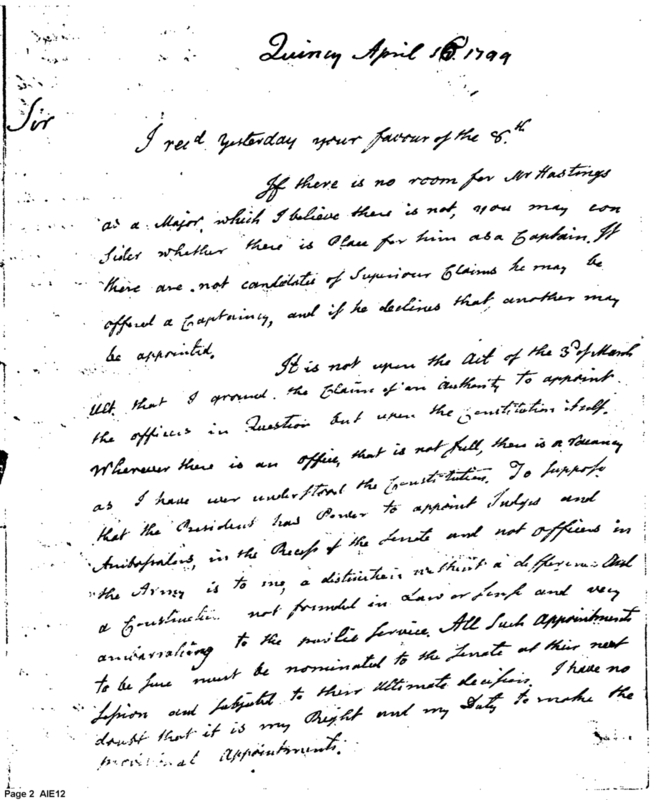 Quincy April 16. 1799
Sir
I recd yesterday your favour of the 8.th
If there is no room for Mr Hastings
as a Major, which I believe there is not, you may con
sider whether there is Place for him as a Captain. If
there are not candidates of Superiour Claims he may be
offered a Captaincy, and if he declines that, another may
be appointed.
It is not upon the Act of the 3d of March
Ult. that I ground the Claim of an Authority to appoint
the officers in Question but upon the Constitution itself.
Wherever there is an office, that is not full, there is a Vacancy
as I have ever understood the Constitution. To suppose
that the President has Power to appoint Judges and
Ambassadors, in the Recess of the Senate and not officers in
the Army is to me, a distinction without a difference and
a Construction not founded in Law or Sense and very
embarrassing to the public Service. All Such Appointments
to be sure must be nominated to the Senate at their next
Session and subjected to their Ultimate decision. I have no
doubt that it is my Right and my Duty to make the
provisional Appointments.
Page 2 AIE12